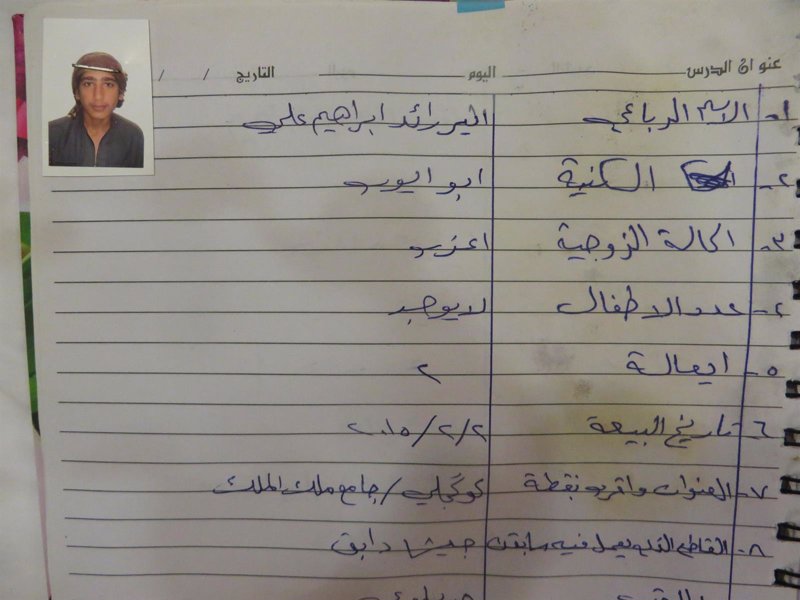 عنوان الدرس اليوم التاريخ / /
١- الاسم الرباعي رائد ابراهيم علي
٢- الكنية ابو ايوب
٣- الحالة الزوجية اعزب
٤- عدد الاطفال لا يوجد
٥- ايعالة ٢
٦- تاريخ البيعة ٢/٢/٢٠١٥
٧- العنوان واقرب نقطة كوكجلي / جامع ملك الملك
٨- القاطع الذي يعمل فيه سابقن جيش دابق